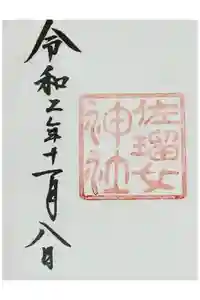 令和二年十一月八日
佐瑠女
神社